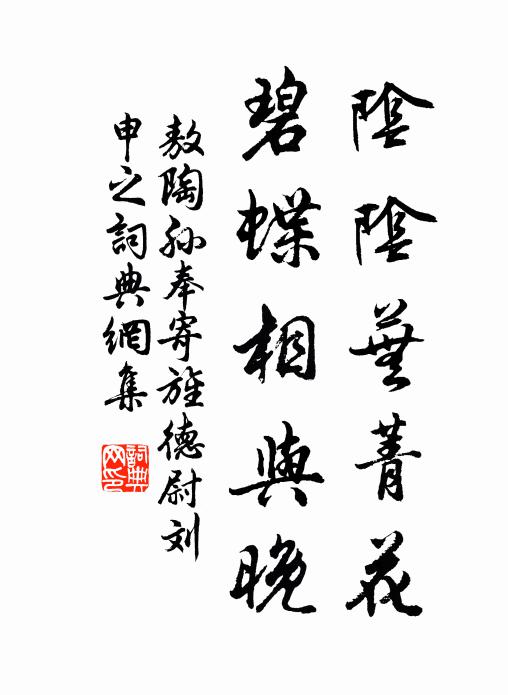 陰陰蕪菁花
碧蝶相與晚
敖陶孙奉寄旌德尉刘
申之詞典網集
詞典網印